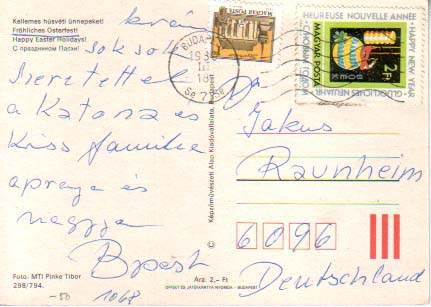 Kellemes húsvéti ünnepeket!
Fröhliches Osterfest!
Happy Easter Holidays!
С праздником Пасхи!
kíván
sok
szeretettel
a Katona és
Kiss família
apraja és
nagyja
Bpest
Foto: MTI Pinke Tibor
298/794.
-50 1068
Képzőművészeti Alap Kiadóvállalata, Budapest
Ára: 2,- Ft
OFFSET ÉS JÁTÉKKÁRTYA NYOMDA - BUDAPEST
MAGYAR POSTA
BUDA
18
HEUREUSE NOUVELLE ANNÉE
HAPPY NEW YEAR
GLÜCKLICHES NEUJAHR
MAGYAR POSTA
2 Ft
BUÉK
Jakus
Raunheim
6096
Deutschland